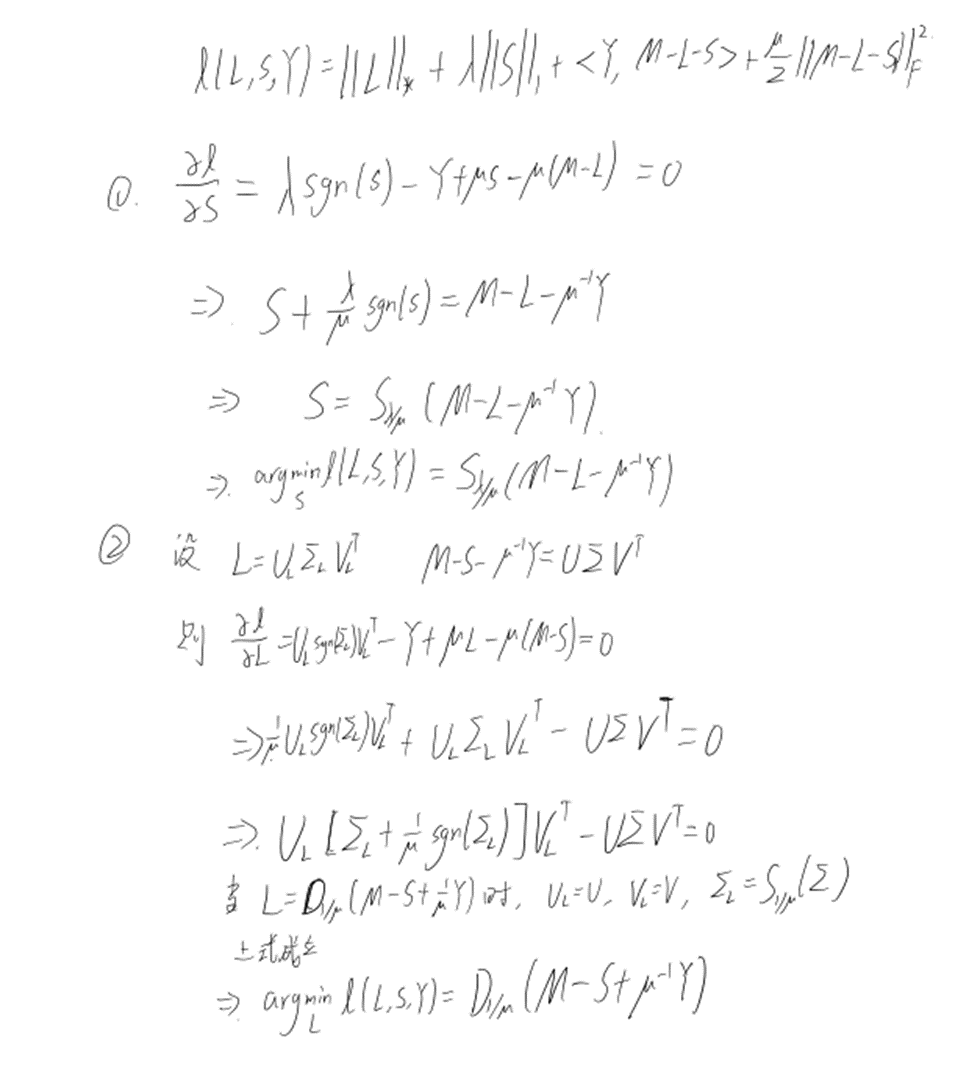 l(L,S,Y)=||L||_* + λ||S||_1 + <Y, M-L-S> + μ/2 ||M-L-S||_F^2
①. ∂l/∂S = λ sgn(s) - Y + μs - μ(M-L) = 0
⇒ S + λ/μ sgn(s) = M-L-μ^{-1}Y
⇒ S = S_{λ/μ} (M-L-μ^{-1}Y)
⇒ argmin_S l(L,S,Y) = S_{λ/μ}(M-L-μ^{-1}Y)
② 设 L=U_L Σ_L V_L^T M-S-μ^{-1}Y=UΣV^T
则 ∂l/∂L = U_L sgn(Σ_L)V_L^T - Y + μL - μ(M-S) = 0
⇒ 1/μ U_L sgn(Σ_L)V_L^T + U_L Σ_L V_L^T - UΣV^T = 0
⇒ U_L [Σ_L + 1/μ sgn(Σ_L)]V_L^T - UΣV^T = 0
当 L=D_{1/μ}(M-S+1/μ Y)时, U_L=U, V_L=V, Σ_L=S_{1/μ}(Σ)
上式成立
⇒ argmin_L l(L,S,Y) = D_{1/μ}(M-S+μ^{-1}Y)